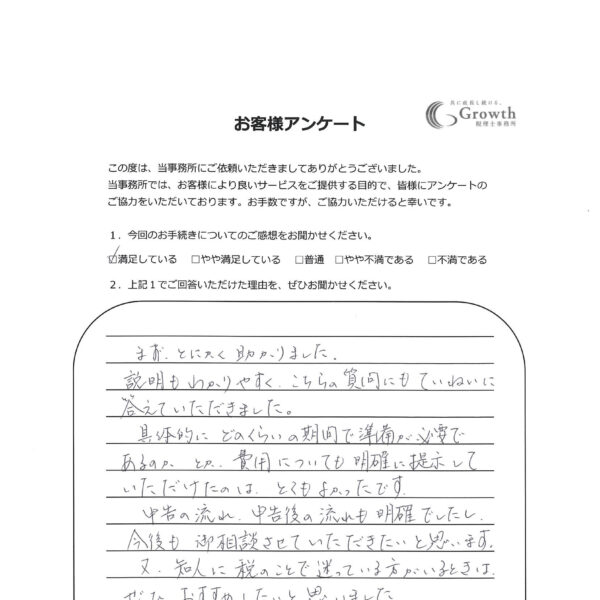 共に成長し続ける。
Growth
税理士事務所
お客様アンケート
この度は、当事務所にご依頼いただきましてありがとうございました。
当事務所では、お客様により良いサービスをご提供する目的で、皆様にアンケートの
ご協力をいただいております。お手数ですが、ご協力いただけると幸いです。
１．今回のお手続きについてのご感想をお聞かせください。
☑満足している □やや満足している □普通 □やや不満である □不満である
２．上記１でご回答いただけた理由を、ぜひお聞かせください。
まず、とにかく助かりました。
説明もわかりやすく、こちらの質問にもていねいに
答えていただきました。
具体的にどのくらいの期間で準備が必要で
あるのか とか、費用についても明確に提示して
いただけたのは、とてもよかったです。
申告の流れ、申告後の流れも明確でしたし、
今後も御相談させていただきたいと思います。
又、知人に税のことで迷っている方がいるときは、
ぜひ、おすすめしたいと思いました。